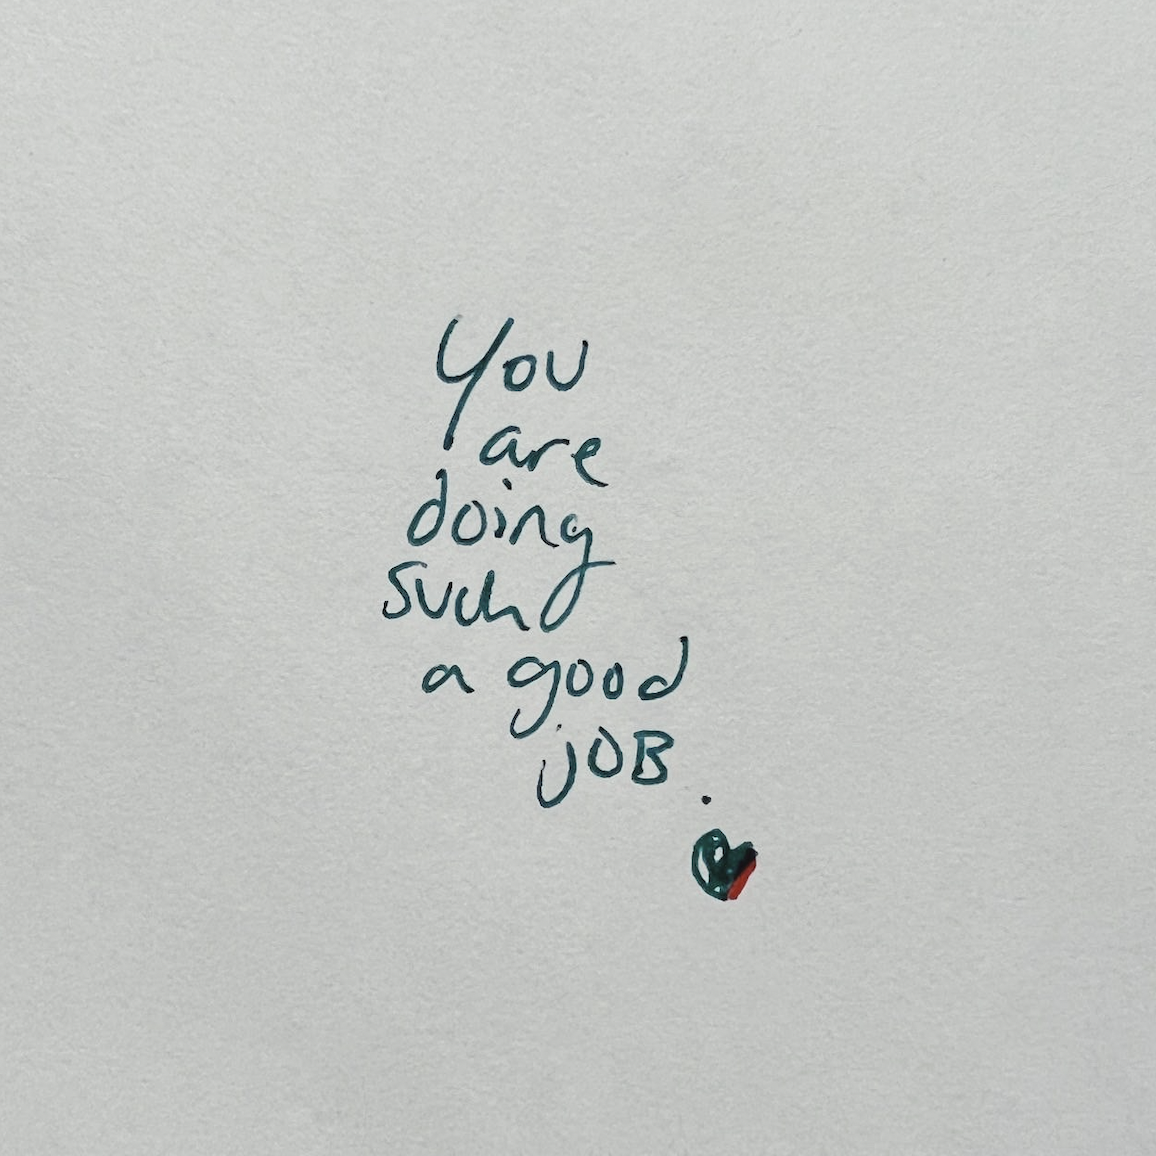 You
are
doing
such
a good
jOB.